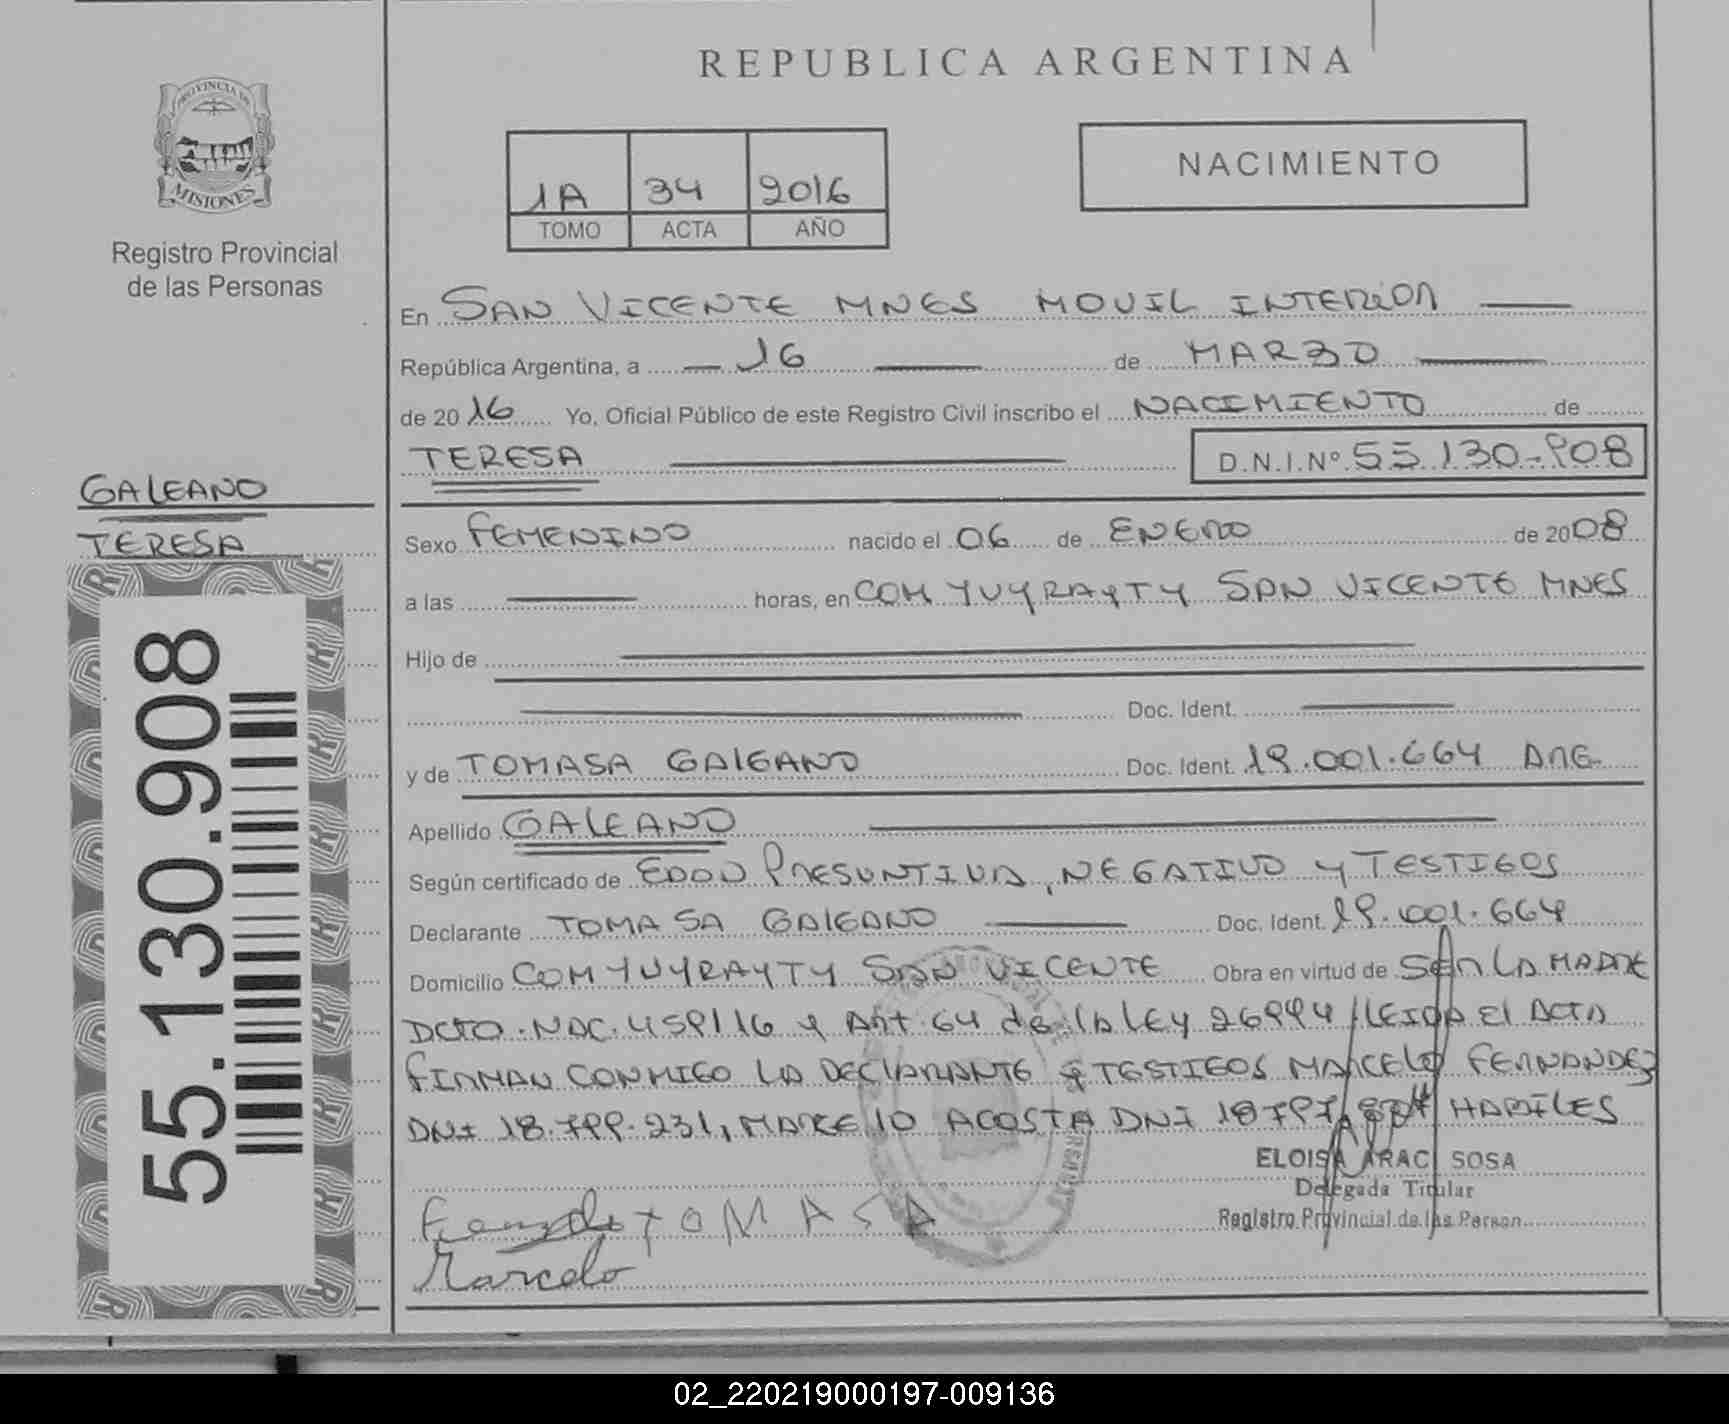 REPUBLICA ARGENTINA
PROVINCIA DE
MISIONES
Registro Provincial
de las Personas
1A 34 2016
TOMO ACTA AÑO
NACIMIENTO
En SAN VICENTE MNES MOVIL INTERIOR
República Argentina, a 16 de MARZO
de 2016 Yo, Oficial Público de este Registro Civil inscribo el NACIMIENTO de
TERESA D.N.I.Nº 55.130.908
GALEANO
TERESA
Sexo FEMENINO nacido el 06 de ENERO de 2008
a las horas, en COM YUYRAYTY SAN VICENTE MNES
Hijo de
Doc. Ident.
y de TOMASA GALEANO Doc. Ident. 19.001.664 ARG.
Apellido GALEANO
Según certificado de EDAD PRESUNTIVA, NEGATIVO Y TESTIGOS
Declarante TOMASA GALEANO Doc. Ident. 19.001.664
Domicilio COM YUYRAYTY SAN VICENTE Obra en virtud de SER LA MADRE
DCTO. NAC. 459/16 Y Art. 64 de la LEY 26994/LEIDA El ACTA
FIRMAN CONMIGO LA DECLARANTE Y TESTIGOS MARCELO FERNANDEZ
DNI 18.799.231, MARCELO ACOSTA DNI HABILES
ELOISA ARACI SOSA
Delegada Titular
Registro Provincial de las Person
TOMASA
Marcelo
55.130.908
02_220219000197-009136